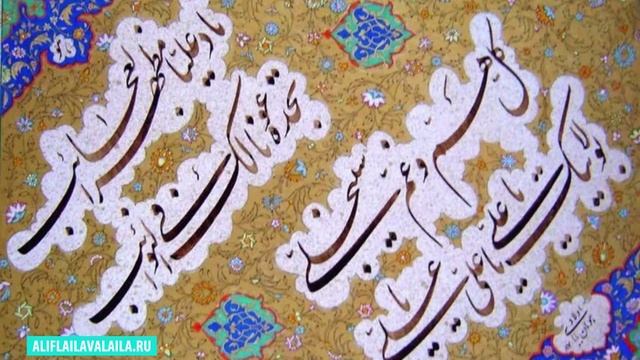 ناد علیا مظهر العجائب
تجده عونا لک فی النوائب
کل هم و غم سینجلی
بولایتک یا علی یا علی یا علی
ALIFLAILAVALAILA.RU